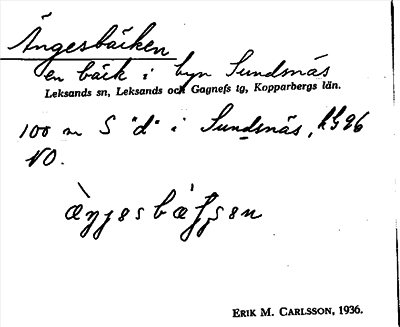 Ängesbäcken
en bäck i byn Sundsnäs
Leksands sn, Leksands och Gagnefs tg, Kopparbergs län.
100 m S "d" i Sundsnäs, 96
NO.
ERIK M. CARLSSON, 1936.